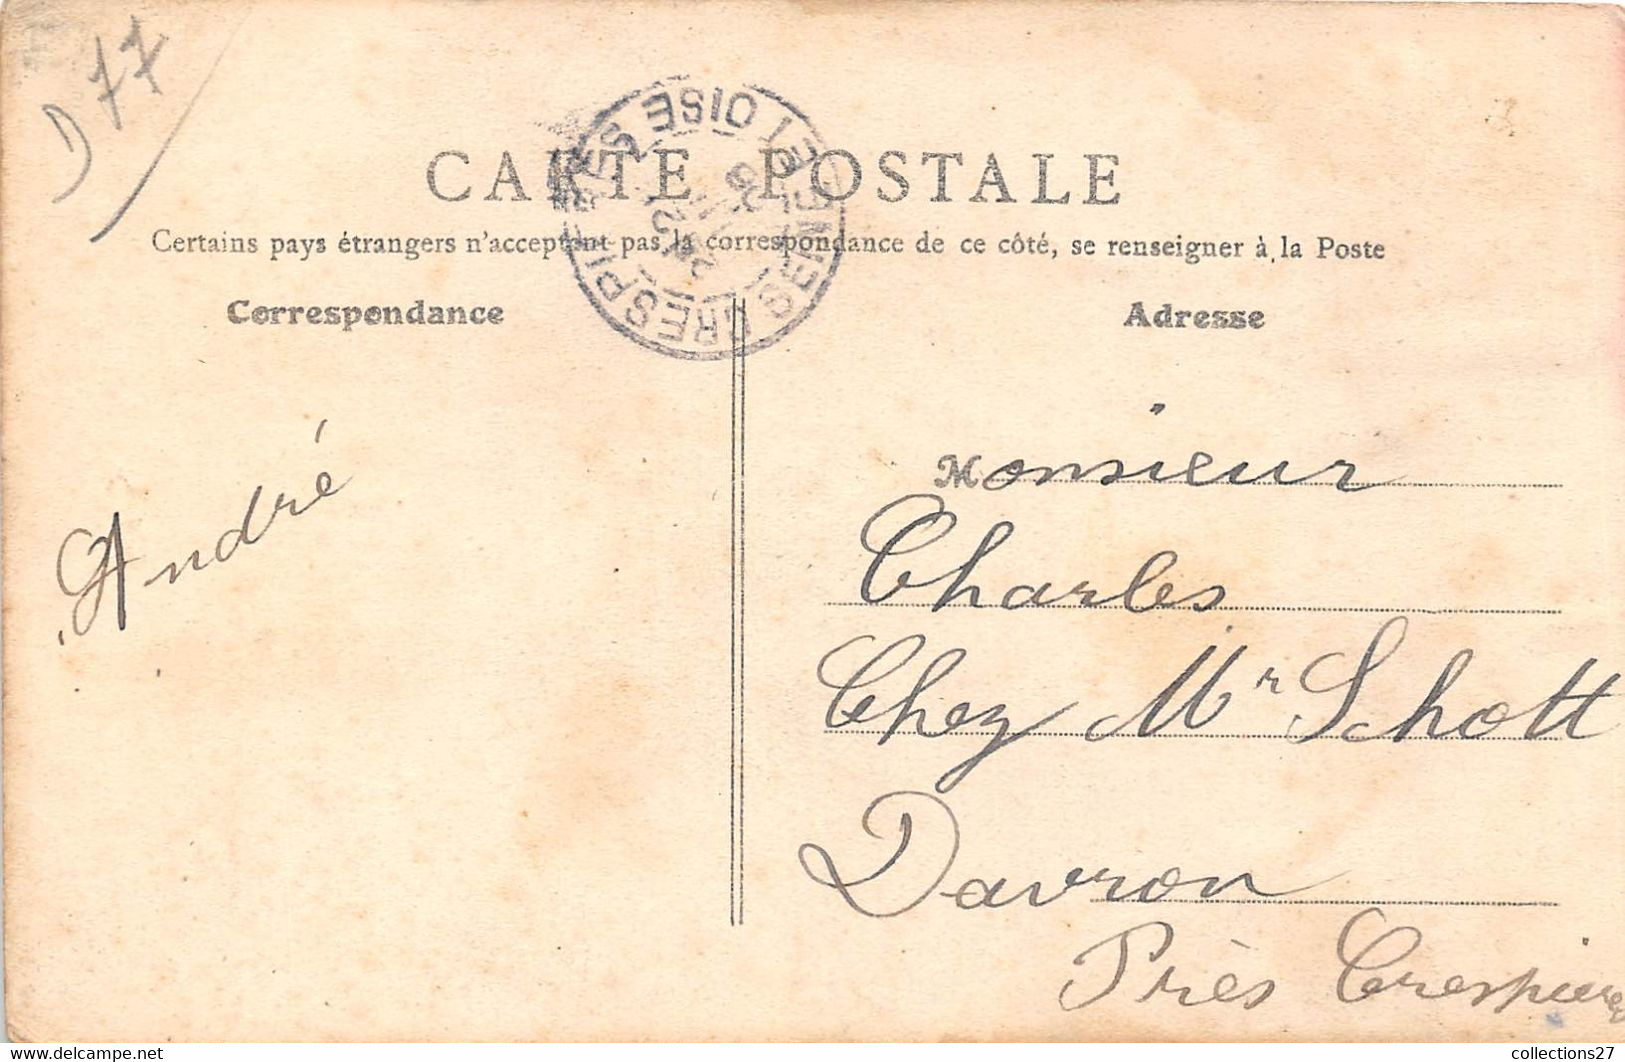 D77
CARTE POSTALE
Certains pays étrangers n'acceptent pas la correspondance de ce côté, se renseigner à la Poste
Correspondance
Adresse
CRESPIÈRES SEINE ET OISE
André
Monsieur
Charles
Chez Mr Schott
Davron
Près Crespières
collections27